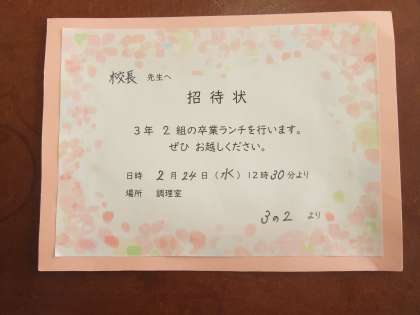 校長 先生へ
招待状
3年 2 組の卒業ランチを行います。
ぜひ お越しください。
日時 2 月 24 日(水)12時30分より
場所 調理室
3の2 より